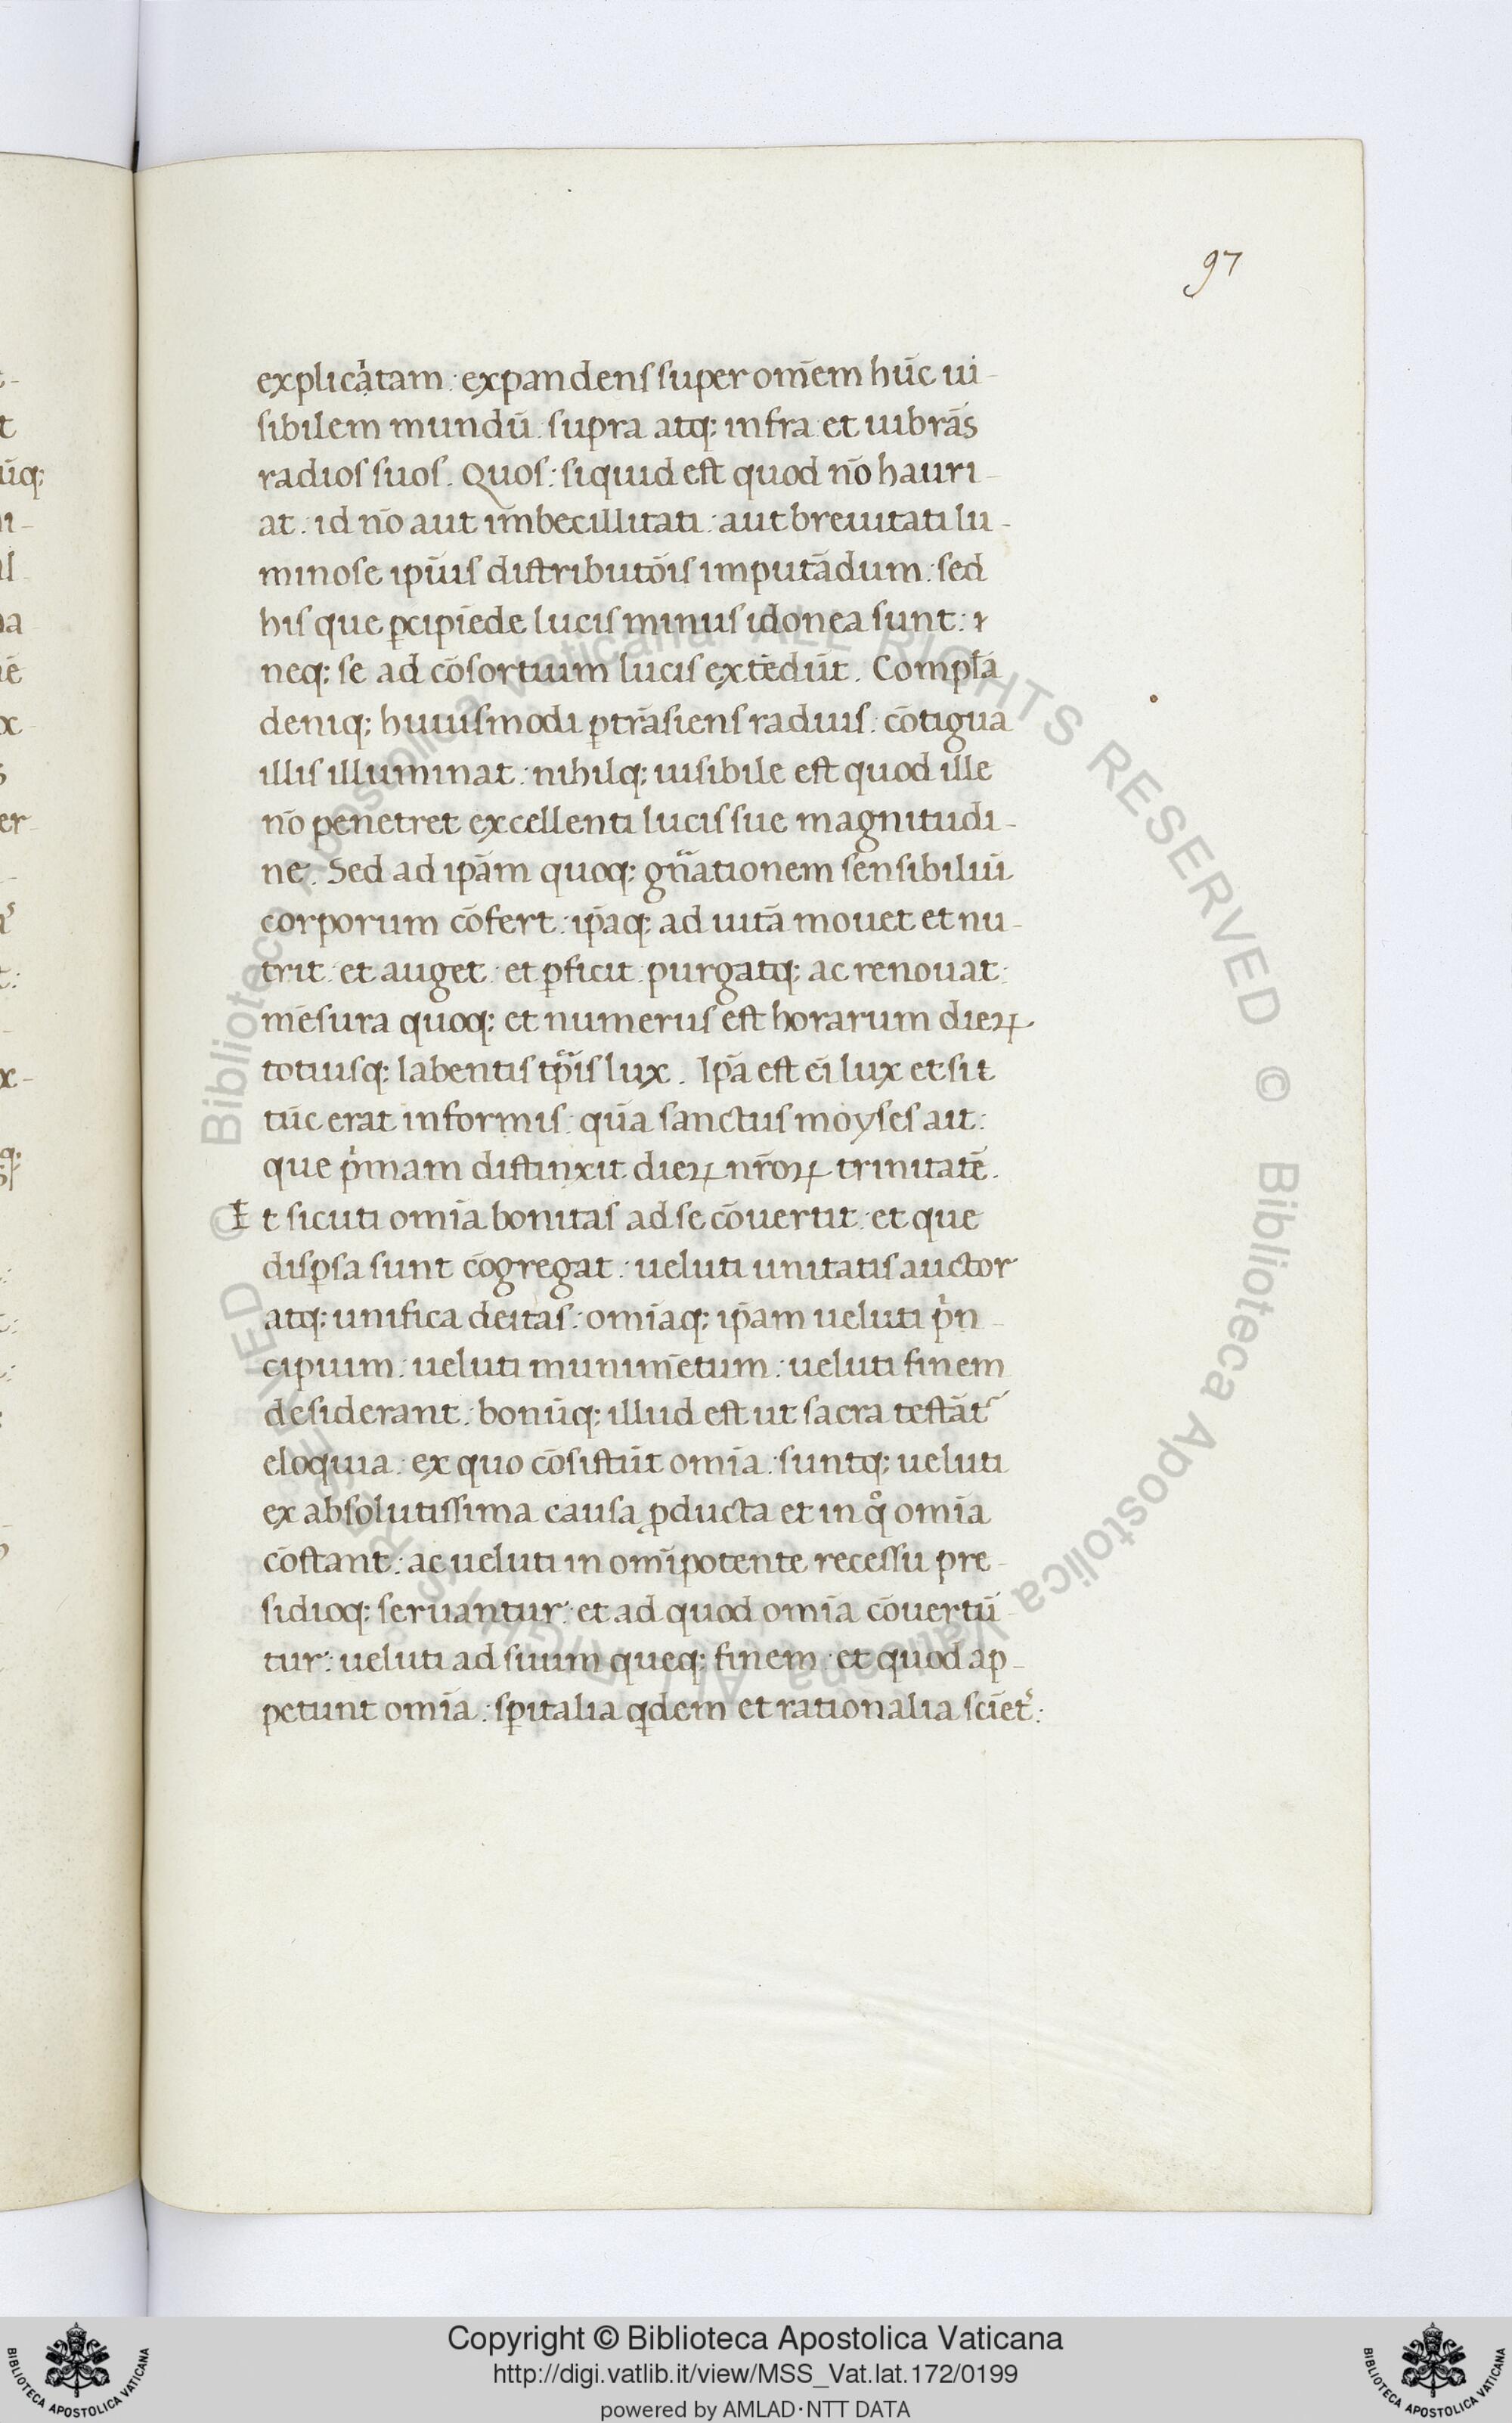 97
explicātam : expandens super om̄em hūc ui-
sibilem mundū . supra atq; infra et uibrās
radios suos . Quos : siquid est quod nō hauri-
at . id nō aut im̄becillitati : aut breuitati lu-
minose ip̄ius distributōis imputādum : sed
his que ꝑcipiēde lucis minus idonea sunt : ⁊
neq; se ad cōsortium lucis extēdūt . Compl̄a
deniq; huiusmodi ꝑtrāsiens radius : cōtigua
illis illuminat : nihilq; uisibile est quod ille
nō penetret excellenti lucis sue magnitudi-
ne . Sed ad ip̄am quoq; gn̄ationem sensibiliū
corporum cōfert : ip̄aq; ad uitā mouet et nu-
trit : et auget : et ꝑficit : purgatq; ac renouat :
mēsura quoq; et numerus est horarum dieꝝ
totiusq; labentis tp̄is lux . Ip̄a est ei lux etsi t
tūc erat informis : quā sanctus moyses ait :
que pⁱmam distinxit dieꝝ nr̄oꝝ trinitatē .
Et sicuti omīa bonitas ad se cōuertit : et que
disꝑsa sunt cōgregat : ueluti unitatis auctor
atq; unifica deitas : omīaq; ip̄am ueluti pⁱn-
cipium : ueluti munimētum : ueluti finem
desiderant : bonūq; illud est ut sacra testāt᷑
eloquia : ex quo cōsistūt omīa : suntq; ueluti
ex absolutissima causa ꝓducta et in qͦ omīa
cōstant : ac ueluti in omīpotente recessu pre-
sidioq; seruantur : et ad quod omīa cōuertū-
tur : ueluti ad suum queq; finem : et quod ap-
petunt omīa : sꝑitalia qͥdem et rationalia sciēt᷑ :
Copyright © Biblioteca Apostolica Vaticana
http://digi.vatlib.it/view/MSS_Vat.lat.172/0199
powered by AMLAD·NTT DATA
BIBLIOTECA APOSTOLICA VATICANA
BIBLIOTECA APOSTOLICA VATICANA
© Biblioteca Apostolica Vaticana ALL RIGHTS RESERVED
© Biblioteca Apostolica Vaticana ALL RIGHTS RESERVED